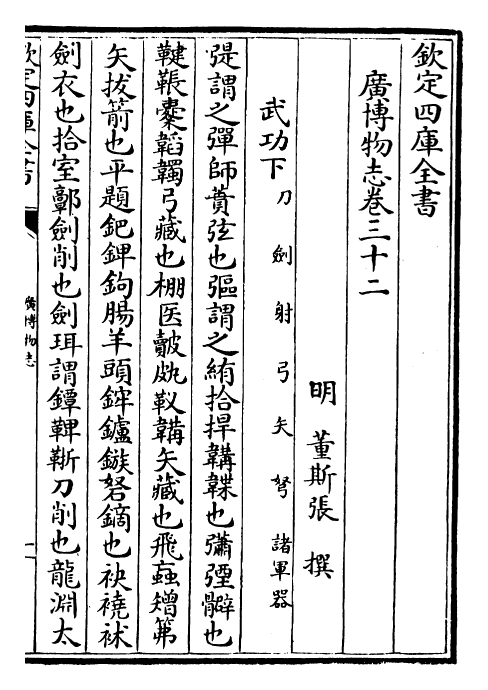 欽定四庫全書
廣博物志卷三十二
明 董斯張 撰
武功下 刀 劍 射 弓 矢 弩 諸軍器
謂之彈師蕡弦也彄謂之絠拾捍韝韘也彇也
鞬䩨櫜韜韣弓藏也棚医皾靫韝矢藏也飛䖟矰第
矢拔箭也平題鈀錍鉤腸羊頭鑪鏃砮鏑也袂襓袜
劍衣也拾室郭劍削也劍珥謂鐔鞞刀削也龍淵太
欽定四庫全書
廣博物志
一